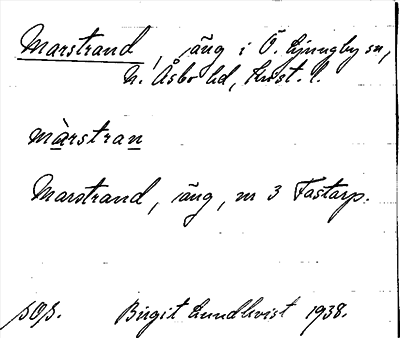 Marstrand, äng i Ö. Ljungby sn,
N. Åsbo hd, Krist. l.
màrstran
Marstrand, äng, nr 3 Fastarp.
sOs. Birgit Lundkvist 1938.